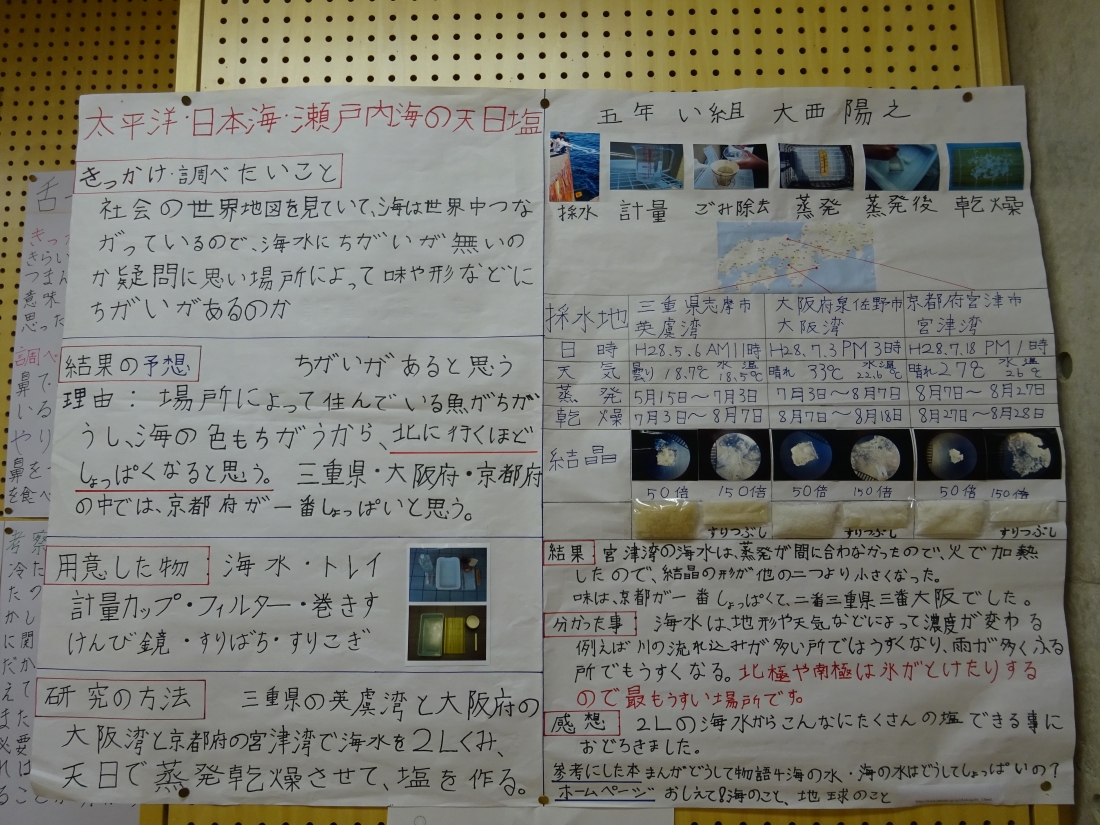 太平洋・日本海・瀬戸内海の天日塩
きっかけ・調べたいこと
社会の世界地図を見ていて、海は世界中つな
がっているので、海水にちがいが無いいの
か疑問に思い場所によって味や形などに
ちがいがあるのか
結果の予想 ちがいがあると思う
理由: 場所によって住んでいる魚がちが
うし、海の色もちがうから、北に行くほど
しょっぱくなると思う。 三重県・大阪府・京都府
の中では、京都府が一番しょっぱいと思う。
用意した物 海水・トレイ
計量カップ・フィルター・巻きす
けんび鏡・すりばち・すりこぎ
研究の方法 三重県の英虞湾と大阪府の
大阪湾と京都府の宮津湾で海水を2Lくみ、
天日で蒸発乾燥させて、塩を作る。
五年 い組 大西陽之
採水 計量 ごみ除去 蒸発 蒸発後 乾燥
採水地 三重県志摩市 英虞湾 大阪府泉佐野市 大阪湾 京都府宮津市 宮津湾
日時 H28.5.6 AM11時 H28.7.3 PM3時 H28.7.18 PM1時
天気 曇り 18.7℃ 水温 18.5℃ 晴れ 33℃ 水温 22.6℃ 晴れ 27℃ 水温 26℃
蒸発 5月15日〜7月3日 7月3日〜8月7日 8月7日〜8月27日
乾燥 7月3日〜8月7日 8月7日〜8月18日 8月27日〜8月28日
結晶
50倍 150倍 50倍 150倍 50倍 150倍
すりつぶし すりつぶし すりつぶし
結果: 宮津湾の海水は、蒸発が間に合わなかったので、火で加熱
したので、結晶の形が他の二つより小さくなった。
味は、京都が一番しょっぱくて、二番三重県三番大阪でした。
分かった事: 海水は地形や天気などによって濃度が変わる
例えば川の流れ込みが多い所ではうすくなり、雨が多くふる
所でもうすくなる。北極や南極は氷がとけたりする
ので最もうすい場所です。
感想 2Lの海水からこんなにたくさんの塩できる事に
おどろきました。
参考にした本 まんがどうして物語4海の水・海の水はどうしてしょっぱいの?
ホームページ おしえて8海のこと、地球のこと